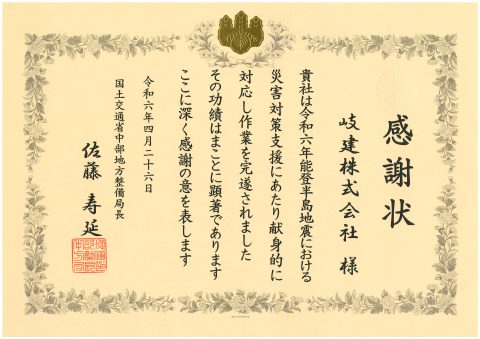 感謝状
岐建株式会社 様
貴社は令和六年能登半島地震における
災害対策支援にあたり献身的に
対応し作業を完遂されました
その功績はまことに顕著であります
ここに深く感謝の意を表します
令和六年四月二十六日
国土交通省中部地方整備局長
佐藤 寿延